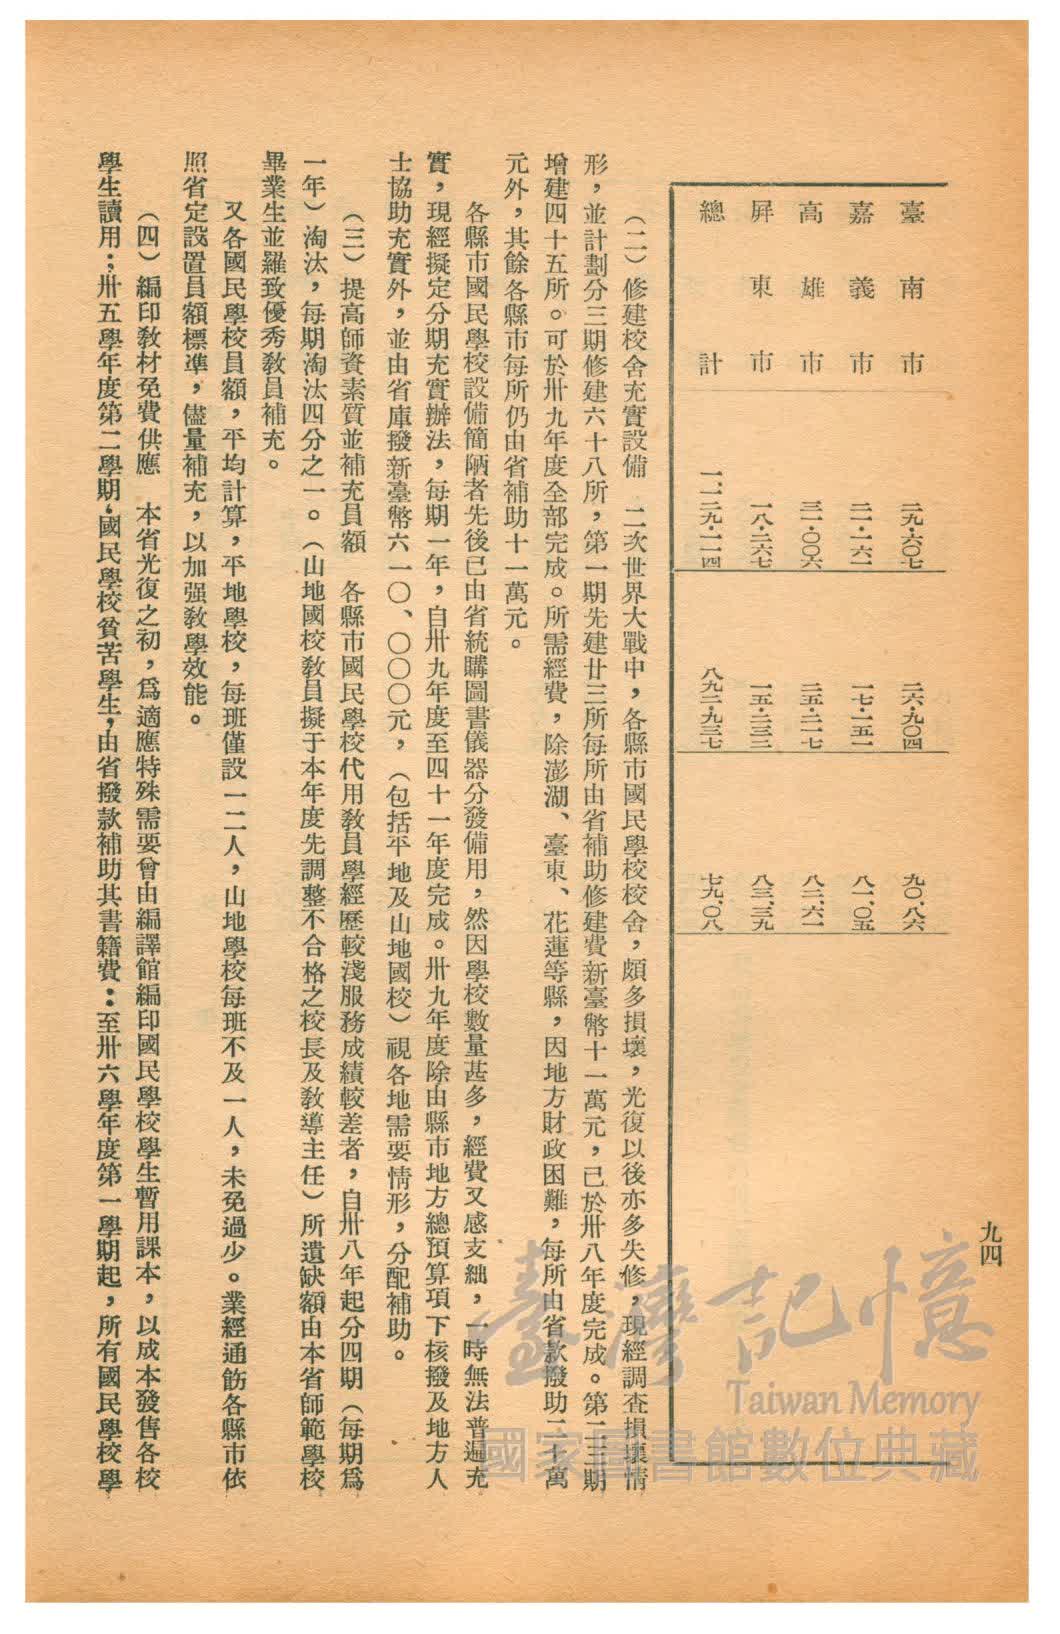 九四
臺南市 二九·六〇七 二六·九〇四 九〇·八六
嘉義市 二一·一六二 一七·一五一 八一·〇五
高雄市 三一·〇〇六 二五·二一七 八二·六一
屏東市 一八·二六七 一五·二三二 八三·三九
總計 一、一二九·一一四 八九二·九三七 七九·〇八
（二）修建校舍充實設備　二次世界大戰中，各縣市國民學校校舍，頗多損壞，光復以後亦多失修，現經調查損壞情
形，並計劃分三期修建六十八所，第一期先建廿三所每所由省補助修建費新臺幣十一萬元，已於卅八年度完成。第二三期
增建四十五所。可於卅九年度全部完成。所需經費，除澎湖、臺東、花蓮等縣，因地方財政困難，每所由省款撥助二十萬
元外，其餘各縣市每所仍由省補助十一萬元。
各縣市國民學校設備簡陋者先後已由省統購圖書儀器分發備用，然因學校數量甚多，經費又感支絀，一時無法普遍充
實，現經擬定分期充實辦法，每期一年，自卅九年度至四十一年度完成。卅九年度除由縣市地方總預算項下核撥及地方人
士協助充實外，並由省庫撥新臺幣六一〇、〇〇〇元，（包括平地及山地國校）視各地需要情形，分配補助。
（三）提高師資素質並補充員額　各縣市國民學校代用教員學經歷較淺服務成績較差者，自卅八年起分四期（每期爲
一年）淘汰，每期淘汰四分之一。（山地國校教員擬于本年度先調整不合格之校長及教導主任）所遺缺額由本省師範學校
畢業生並羅致優秀教員補充。
又各國民學校員額，平均計算，平地學校，每班僅設一二人，山地學校每班不及一人，未免過少。業經通飭各縣市依
照省定設置員額標準，儘量補充，以加强教學效能。
（四）編印教材免費供應　本省光復之初，爲適應特殊需要曾由編譯館編印國民學校學生暫用課本，以成本發售各校
學生讀用；卅五學年度第二學期，國民學校貧苦學生，由省撥款補助其書籍費：至卅六學年度第一學期起，所有國民學校學
臺灣記憶
Taiwan Memory
國家圖書館數位典藏